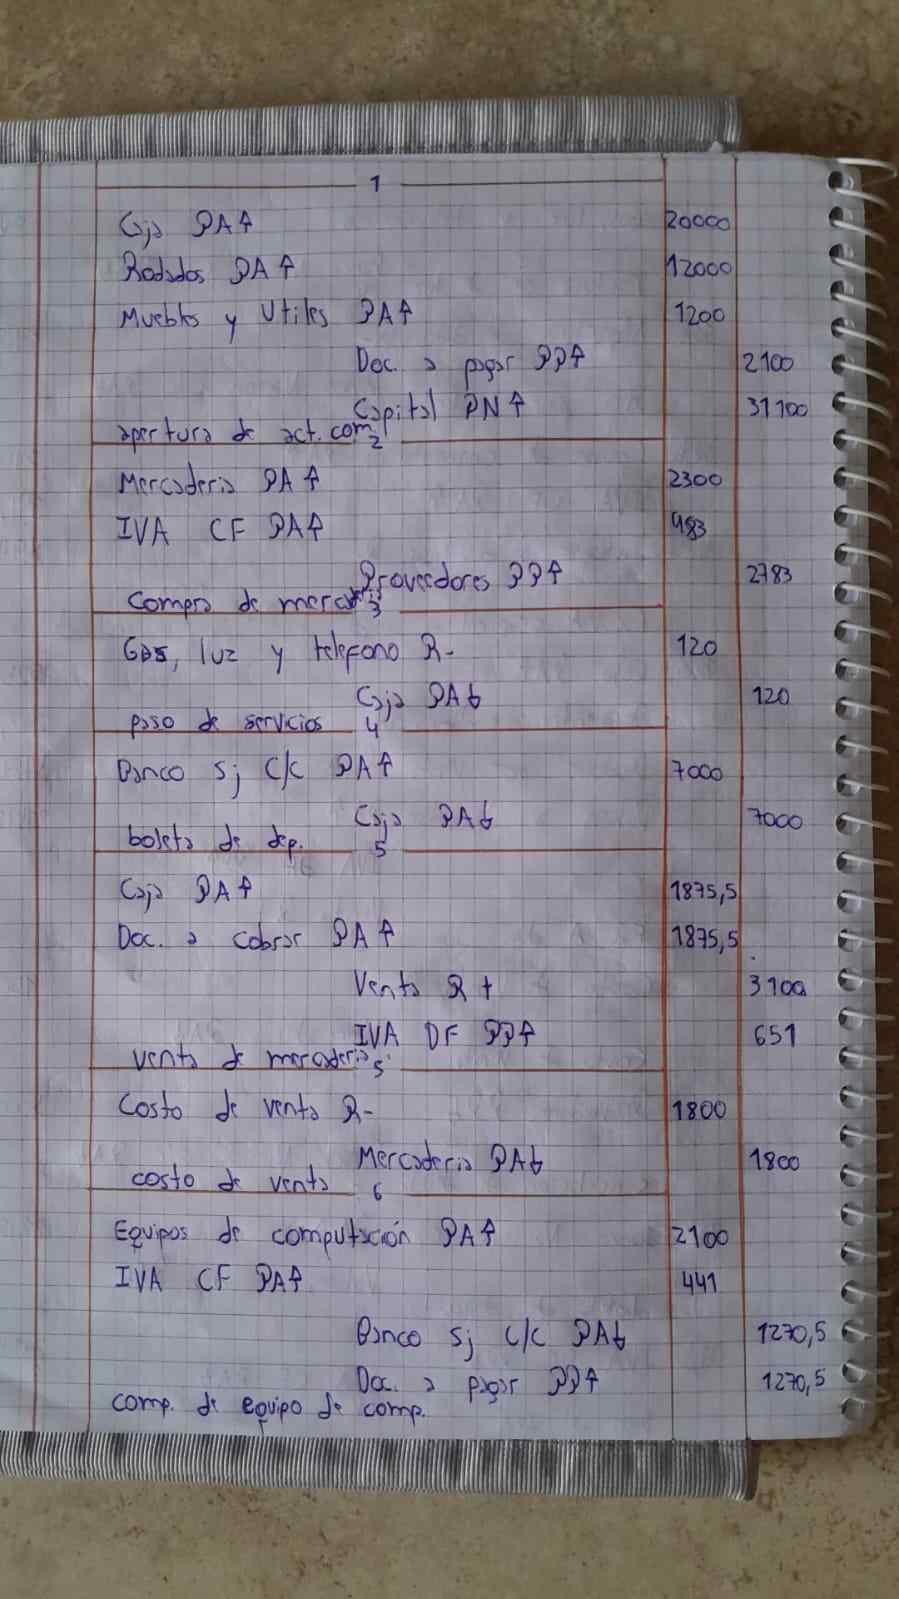 1
Caja PA↑ 20000
Rodados PA↑ 12000
Muebles y Utiles PA↑ 1200
Doc. a pagar PP↑ 2100
Capital PN↑ 31100
apertura de act. com.
2
Mercaderia PA↑ 2300
IVA CF PA↑ 483
Proveedores PP↑ 2783
compra de mercad
3
Gas, luz y telefono R- 120
Caja PA↓ 120
paso de servicios
4
Banco S/ C/C PA↑ 7000
Caja PA↓ 7000
boleta de dep.
5
Caja PA↑ 1875,5
Doc. a cobrar PA↑ 1875,5
Venta R+ 3100
IVA DF PP↑ 651
venta de mercaderia
5'
Costo de venta R- 1800
Mercaderia PA↓ 1800
costo de venta
6
Equipos de computación PA↑ 2100
IVA CF PA↑ 441
Banco S/ C/C PA↓ 1270,5
Doc. a pagar PP↑ 1270,5
comp. de equipo de comp.